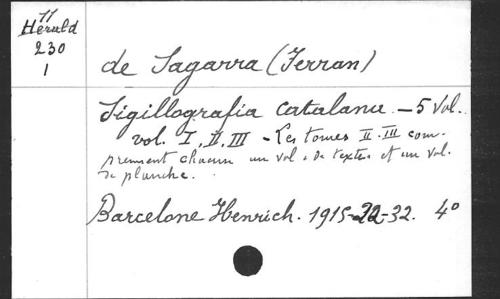 11
Herald
230
1
de Sagarra (Ferran)
Sigillografia catalane _ 5 Vol.
vol. I, II, III - Les tomes II. III com-
prennent chacun un vol. de texte et un vol.
de planche.
Barcelone Henrich. 1915-22-32. 4º